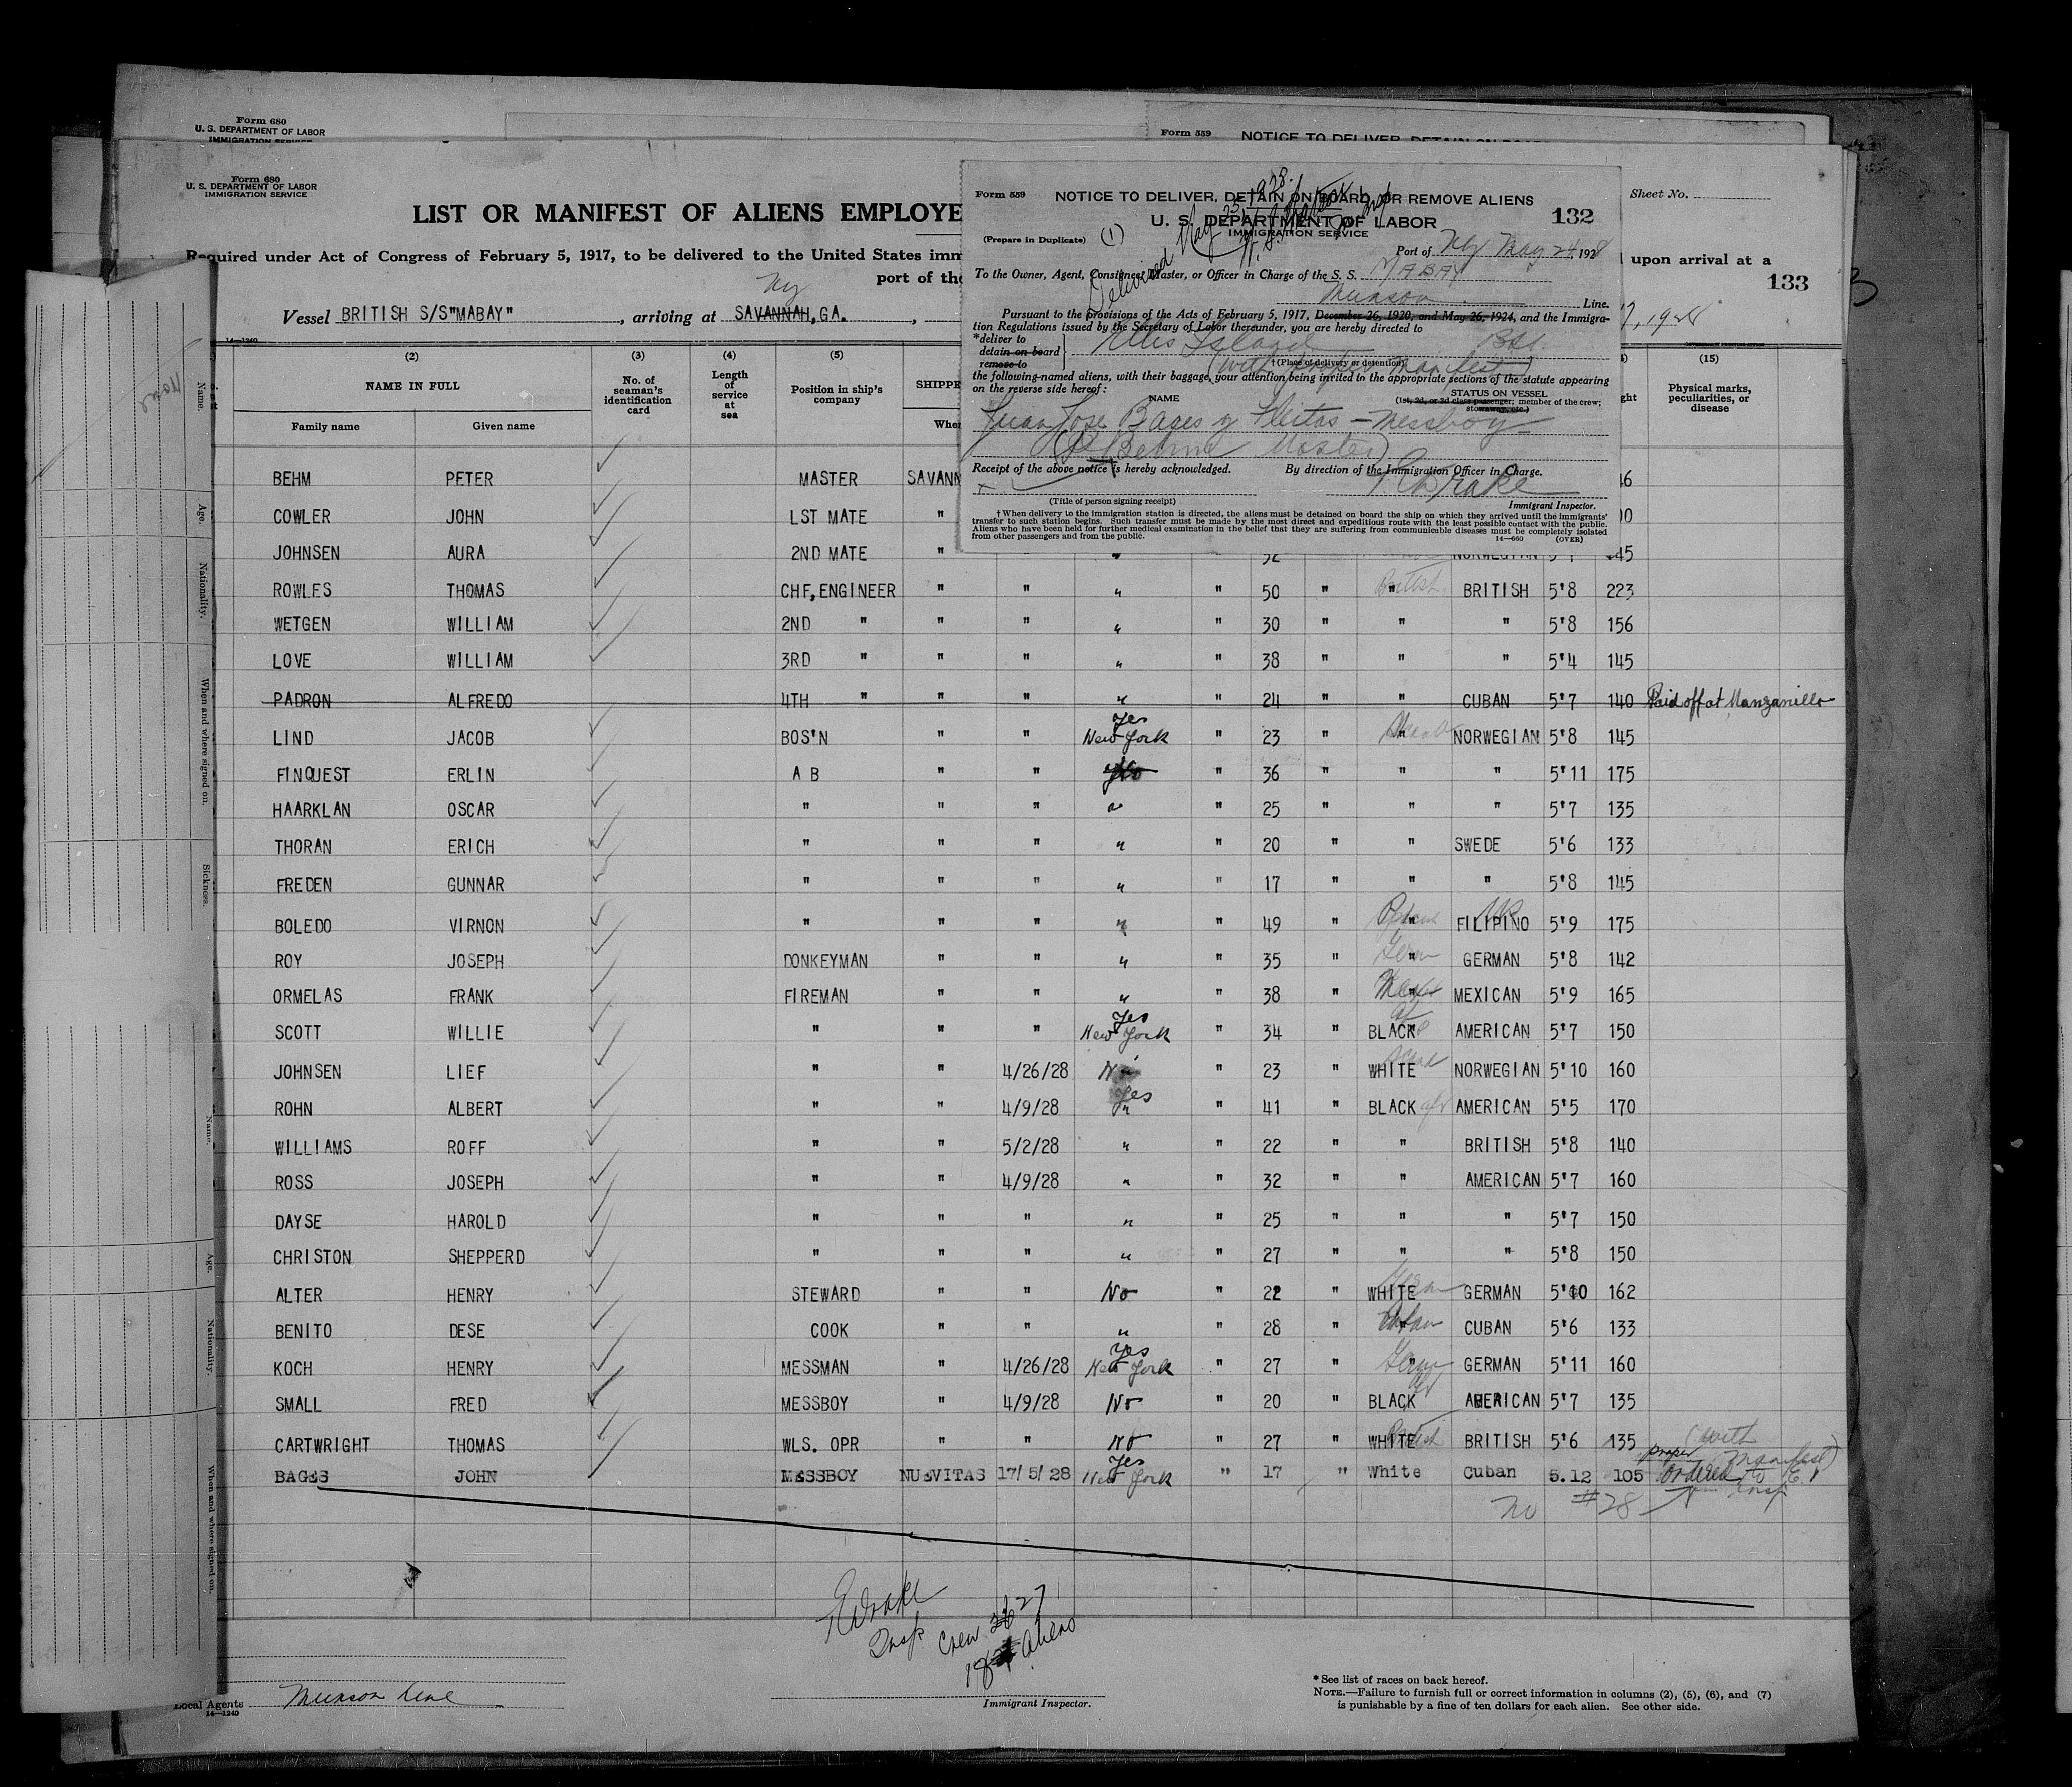 Form 680
U. S. DEPARTMENT OF LABOR
IMMIGRATION SERVICE
Form 559 NOTICE TO DELIVER, DETAIN ON BOARD
Form 680
U. S. DEPARTMENT OF LABOR
IMMIGRATION SERVICE
Sheet No.
LIST OR MANIFEST OF ALIENS EMPLOYE
Required under Act of Congress of February 5, 1917, to be delivered to the United States imm
upon arrival at a
port of the
133
Ny
Vessel BRITISH S/S"MABAY", arriving at SAVANNAH, GA.,
14—1240
Form 559
NOTICE TO DELIVER, DETAIN ON BOARD, OR REMOVE ALIENS
132
U. S. DEPARTMENT OF LABOR
IMMIGRATION SERVICE
(Prepare in Duplicate) (1)
Delivered May 25 1928.
Port of Ny May 24, 1928
To the Owner, Agent, Consignee, Master, or Officer in Charge of the S. S. MABAY
Munson Line.
Pursuant to the provisions of the Acts of February 5, 1917, December 26, 1920, and May 26, 1924, and the Immigra-
tion Regulations issued by the Secretary of Labor thereunder, you are hereby directed to
*deliver to
detain on board
remove to
Ellis Island
† (Place of delivery or detention)
(with proper manifest)
the following-named aliens, with their baggage, your attention being invited to the appropriate sections of the statute appearing
on the reverse side hereof:
NAME
STATUS ON VESSEL
(1st, 2d, or 3d class passenger; member of the crew;
stowaway, etc.)
Juan Jose Bages y Fleitas - Messboy
(P Behm Master)
Receipt of the above notice is hereby acknowledged. By direction of the Immigration Officer in Charge.
R Drake
(Title of person signing receipt)
Immigrant Inspector.
† When delivery to the immigration station is directed, the aliens must be detained on board the ship on which they arrived until the immigrants'
transfer to such station begins. Such transfer must be made by the most direct and expeditious route with the least possible contact with the public.
Aliens who have been held for further medical examination in the belief that they are suffering from communicable diseases must be completely isolated
from other passengers and from the public.
14—660 (OVER)
(2) (3) (4) (5) (15)
NAME IN FULL
Family name Given name
No. of seaman's identification card
Length of service at sea
Position in ship's company
SHIPPE
Whe
Physical marks, peculiarities, or disease
BEHM PETER MASTER SAVANN
COWLER JOHN LST MATE "
JOHNSEN AURA 2ND MATE " NORWEGIAN
ROWLES THOMAS CHF, ENGINEER " " " " 50 " " British BRITISH 5'8 223
WETGEN WILLIAM 2ND " " " " " 30 " " " 5'8 156
LOVE WILLIAM 3RD " " " " " 38 " " " 5'4 145
PADRON ALFREDO 4TH " " " " 24 " " CUBAN 5'7 140 Paid off at Manzanillo
LIND JACOB BOS'N " " Yes New York " 23 " " NORWEGIAN 5'8 145
FINQUEST ERLIN A B " " No " 36 " " " 5'11 175
HAARKLAN OSCAR " " " " " 25 " " " 5'7 135
THORAN ERICH " " " " " 20 " " SWEDE 5'6 133
FREDEN GUNNAR " " " " " 17 " " " 5'8 145
BOLEDO VIRNON " " " " " 49 " " FILIPINO 5'9 175
ROY JOSEPH DONKEYMAN " " " " 35 " " Germ GERMAN 5'8 142
ORMELAS FRANK FIREMAN " " " " 38 " " Mex MEXICAN 5'9 165
SCOTT WILLIE " " " Yes New York " 34 " BLACK AMERICAN 5'7 150
JOHNSEN LIEF " " 4/26/28 No " 23 " WHITE NORWEGIAN 5'10 160
ROHN ALBERT " " 4/9/28 Yes " " 41 " BLACK afr AMERICAN 5'5 170
WILLIAMS ROFF " " 5/2/28 " " 22 " " BRITISH 5'8 140
ROSS JOSEPH " " 4/9/28 " " 32 " " AMERICAN 5'7 160
DAYSE HAROLD " " " " " 25 " " " 5'7 150
CHRISTON SHEPPERD " " " " " 27 " " " 5'8 150
ALTER HENRY STEWARD " " No " 22 " WHITE Germ GERMAN 5'10 162
BENITO DESE COOK " " " " 28 " Cuban CUBAN 5'6 133
KOCH HENRY MESSMAN " 4/26/28 Yes New York " 27 " " Germ GERMAN 5'11 160
SMALL FRED MESSBOY " 4/9/28 No " 20 " BLACK afr AMERICAN 5'7 135
CARTWRIGHT THOMAS WLS. OPR " " No " 27 " WHITE British BRITISH 5'6 135
BAGES JOHN MESSBOY NUEVITAS 17/5/28 Yes New York " 17 " White Cuban 5.12 105 Ordered to E.I. (with proper manifest)
No #28
R Drake
Insp
Crew 27
18 aliens
Local Agents Munson Line
14—1240
Immigrant Inspector.
* See list of races on back hereof.
NOTE.—Failure to furnish full or correct information in columns (2), (5), (6), and (7)
is punishable by a fine of ten dollars for each alien. See other side.
Name.
Age.
Nationality.
When and where signed on.
Sickness.
Name.
Age.
Nationality.
When and where signed on.